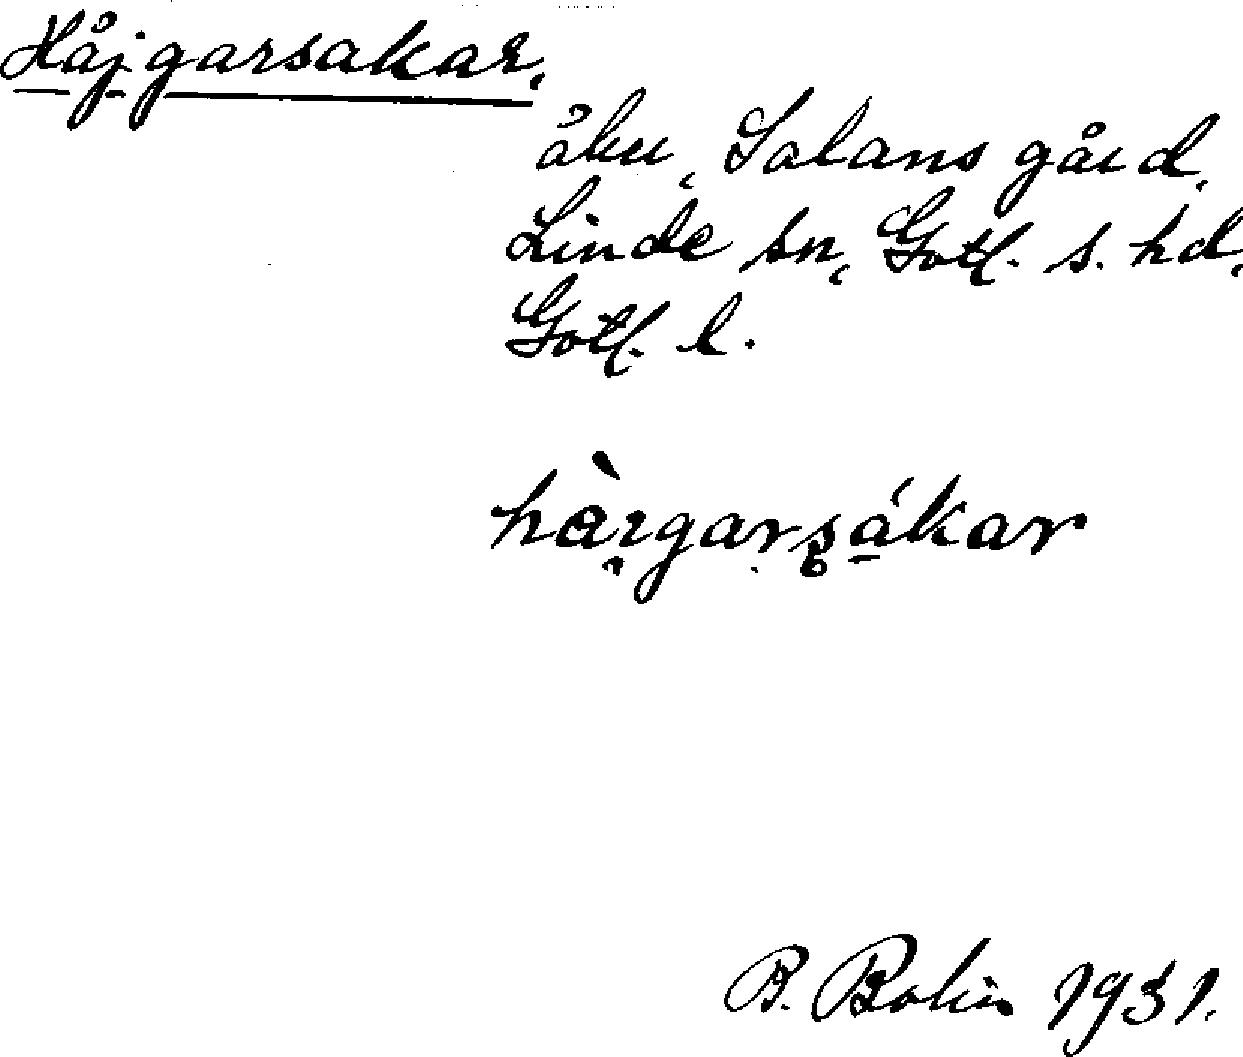 Håjgarsakar,
åker, Salans gård,
Linde sn, Gotl. s. hd,
Gotl. l.
hàigarsákar
B. Bolin 1931.